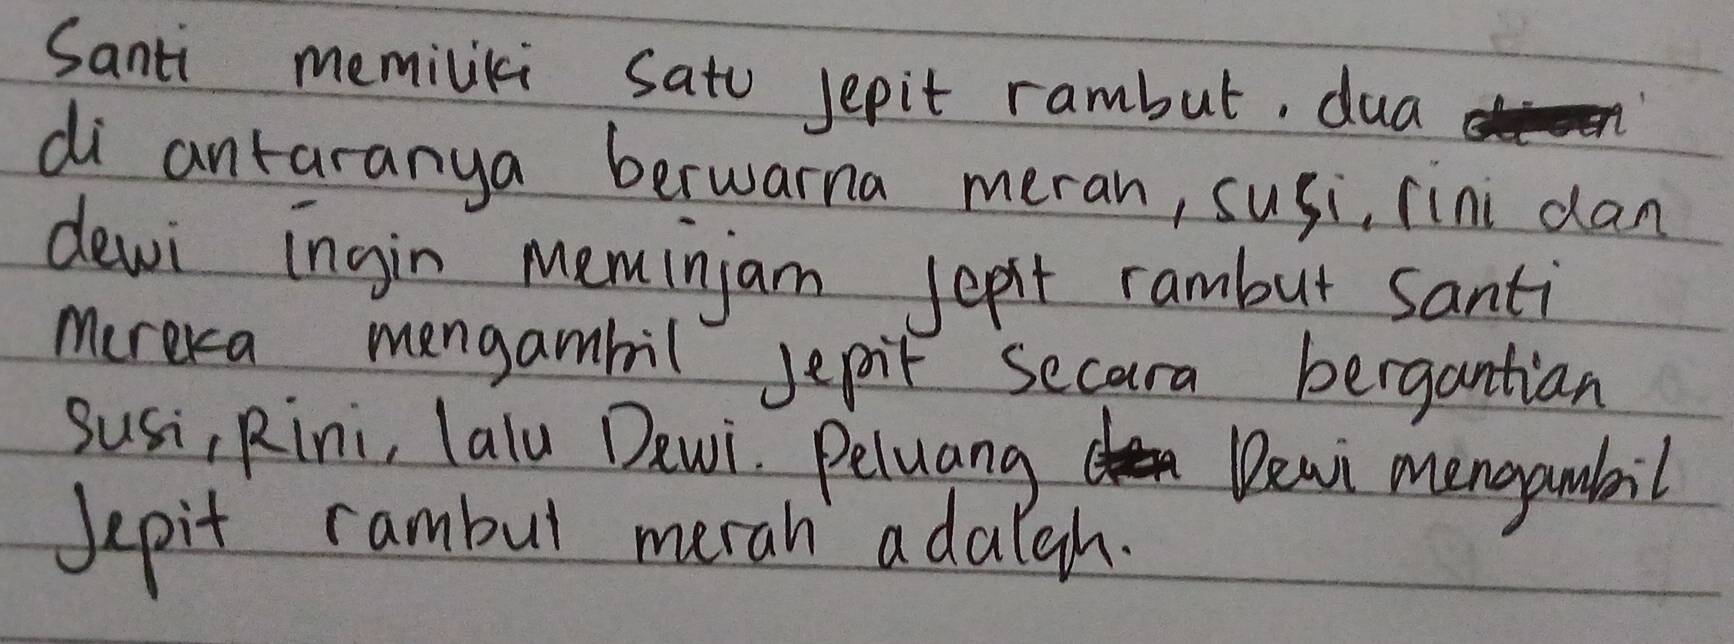 Santi memiliki satu jepit rambut. dua
di antaranya berwarna merah, susi, rini dan
dewi ingin meminjam jepit rambut santi
mereka mengambil jepit secara bergantian
susi, Rini, lalu Dewi. Peluang Dewi mengambil
Jepit rambut merah adalah.